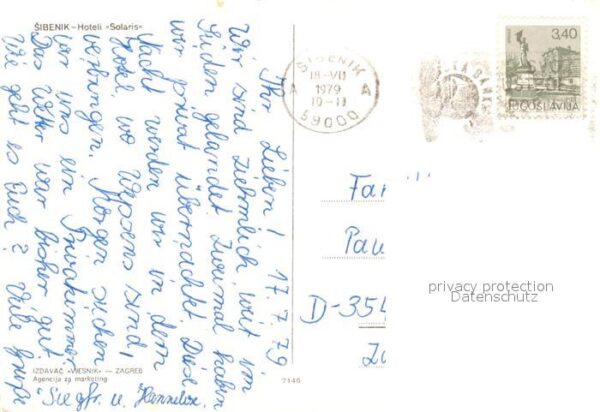 ŠIBENIK – Hoteli »Solaris«
Ihr Lieben! 17.7.79
Wir sind ziehmlich weit im
Süden gelandet. Zweimal haben
wir privat übernachtet. Diese
Nacht werden wir in dem
Hotel wo Weppens sind,
verbringen. Morgen suchen
wir uns ein Privatzimmer.
Das Wetter war bisher gut.
Wie geht es Euch? Viele Grüße
Siegfr. u. Hannelore.
IZDAVAČ »VJESNIK« — ZAGREB
Agencija za marketing
7146
ŠIBENIK
18-VII
1979
10-11
A A
59000
3,40
JUGOSLAVIJA
Fam
Pau
D-354
privacy protection
Datenschutz